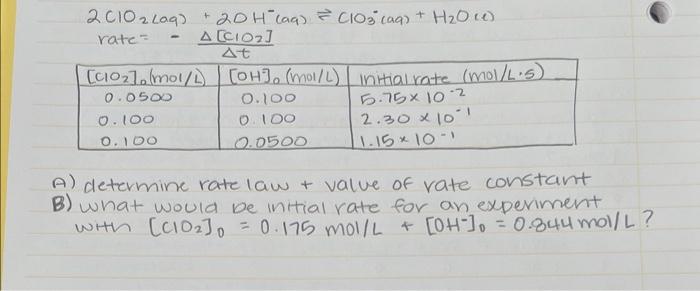 2ClO2(aq) + 2OH-(aq) ⇌ ClO3-(aq) + H2O(l)
rate = - Δ[ClO2]
Δt
[ClO2]0(mol/L) [OH-]0 (mol/L) initial rate (mol/L·s)
0.0500 0.100 5.75×10-2
0.100 0.100 2.30×10-1
0.100 0.0500 1.15×10-1
A) determine rate law + value of rate constant
B) what would be initial rate for an experiment
with [ClO2]0 = 0.175 mol/L + [OH-]0 = 0.844 mol/L?